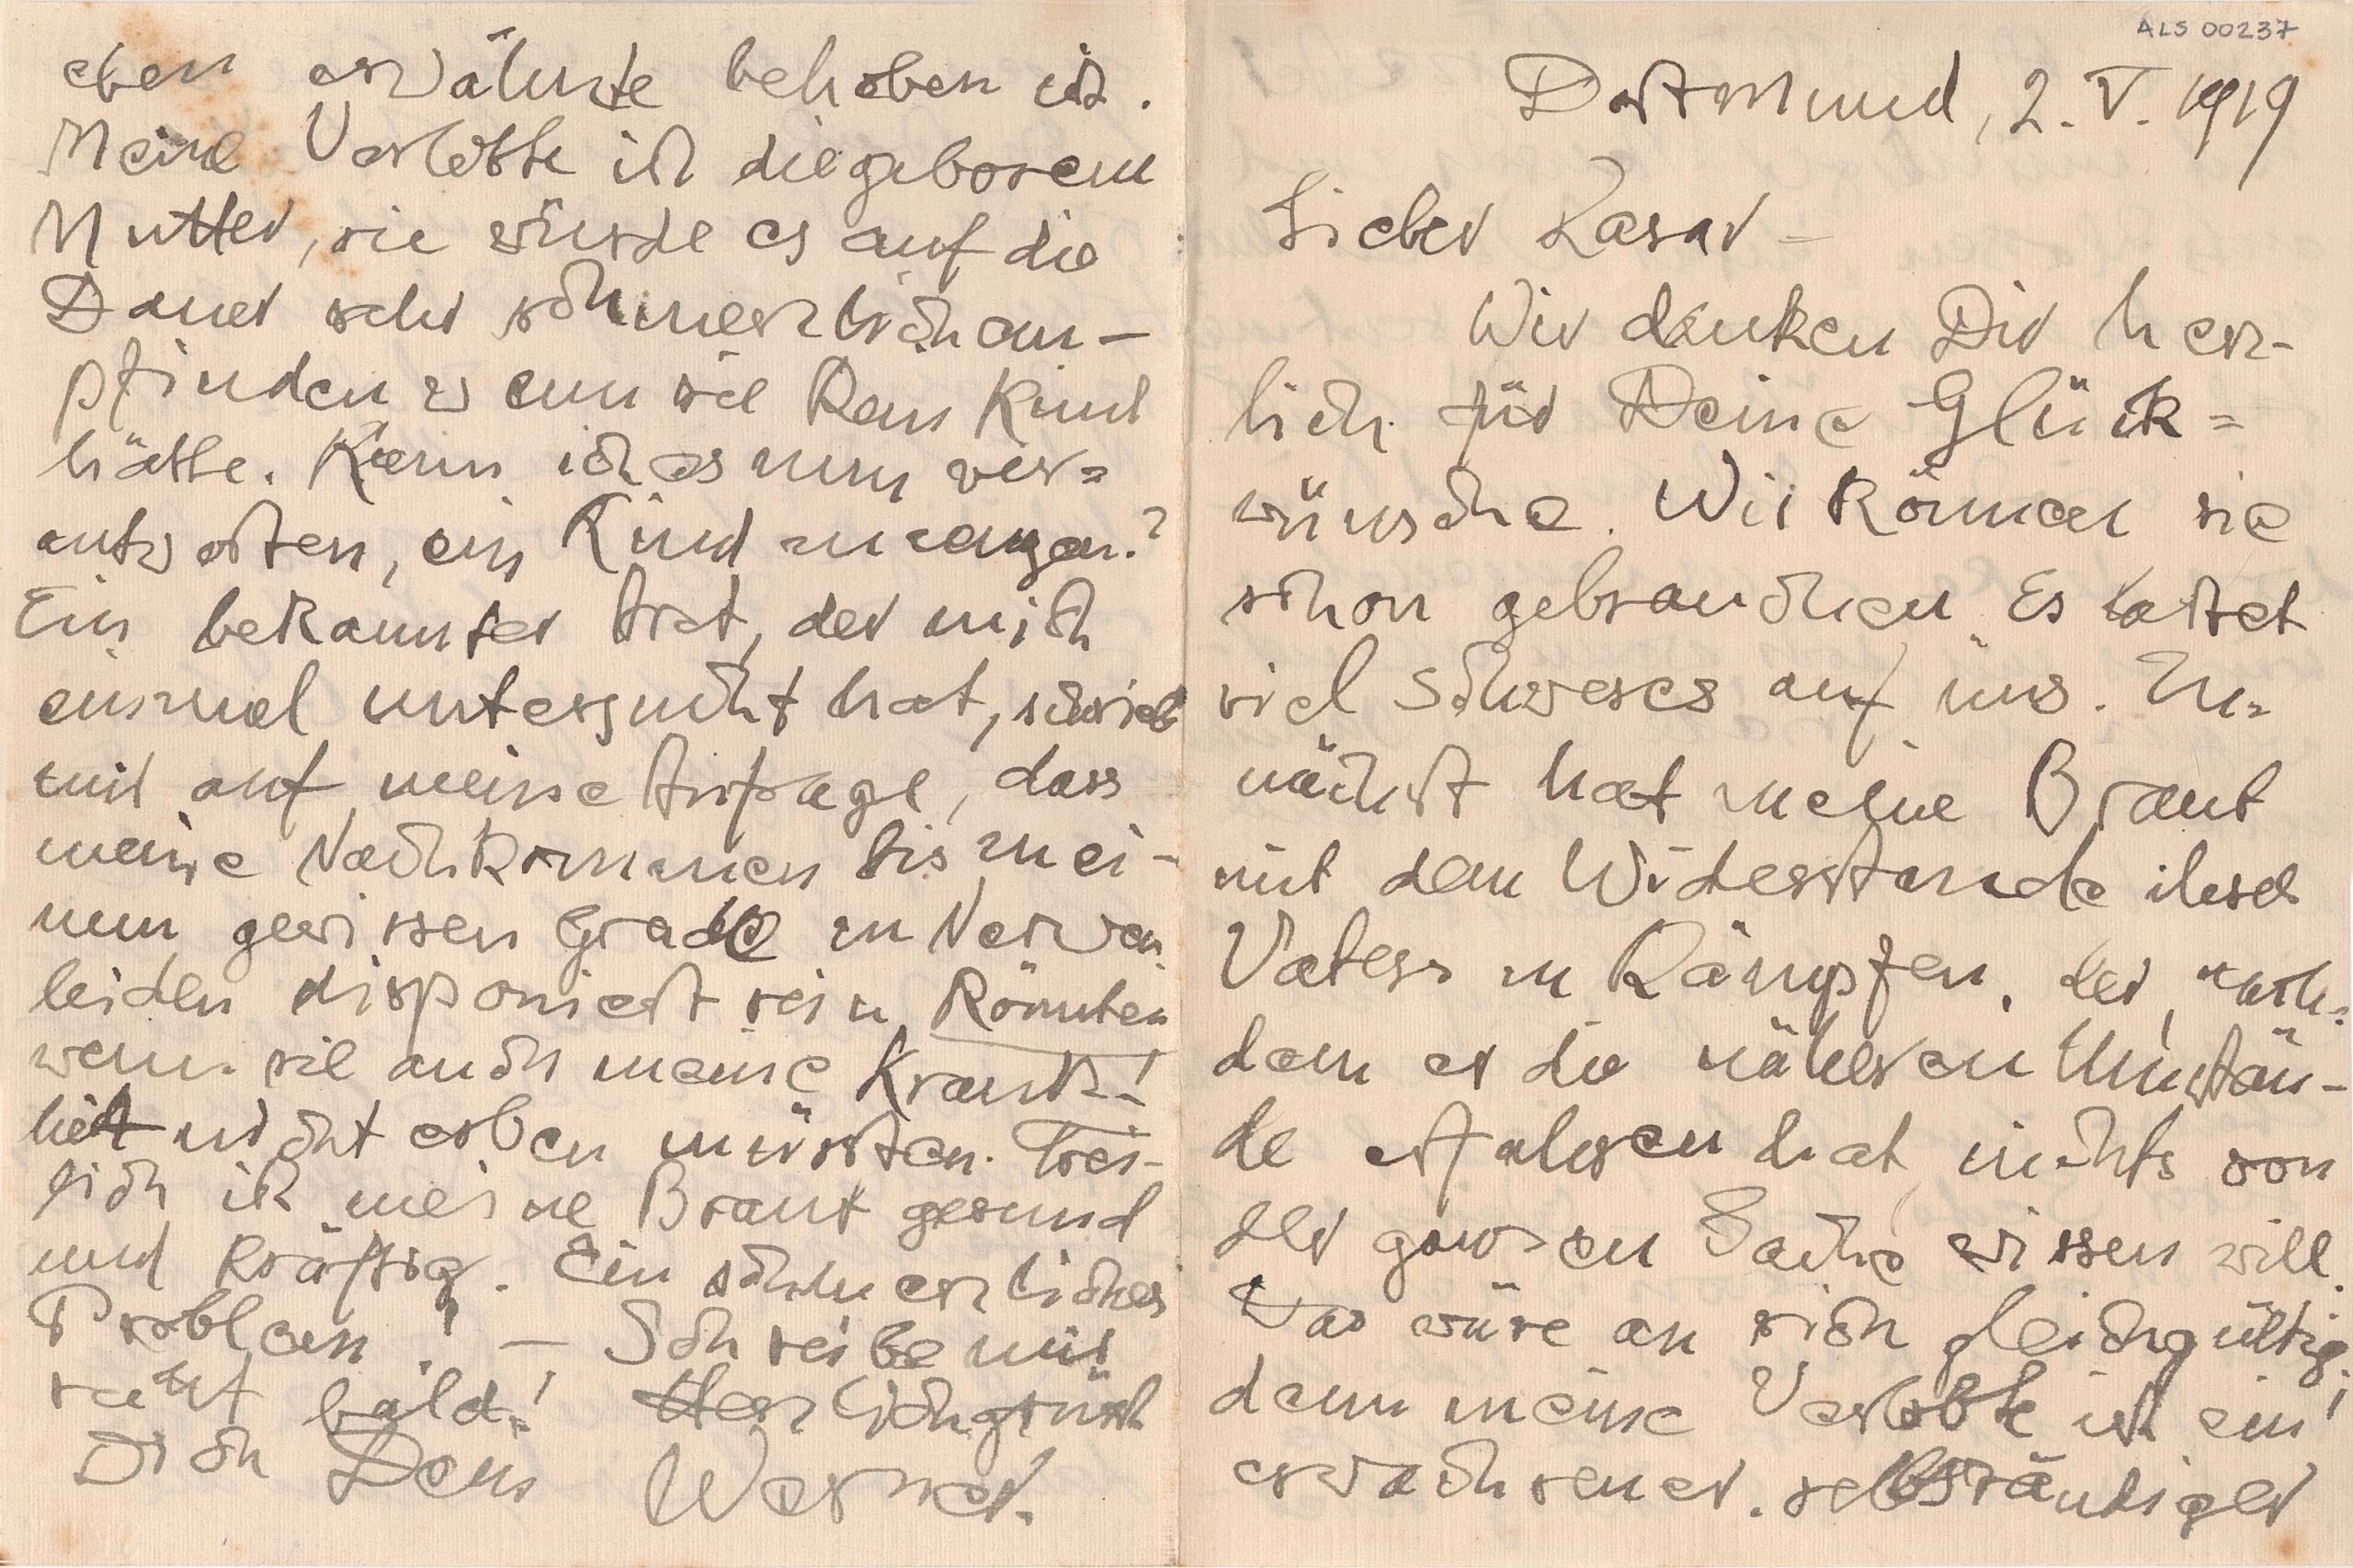 ALS 00237
Dortmund, 2. V. 1919
Lieber Kasar –
Wir danken Dir herz-
lich für Deine Glück=
wünsche. Wir können sie
schon gebrauchen. Es lastet
viel Schweres auf uns. Zu=
nächst hat meine Braut
mit dem Widerstande ihres
Vaters zu kämpfen, der, nach=
dem er die näheren Umstän-
de erfahren hat, nichts von
der ganzen Sache wissen will.
Das wäre an sich gleichgültig,
denn meine Verlobte ist ein
erwachsener, selbständiger
eben erwähnte behoben ist.
Meine Verlobte ist die geborene
Mutter, sie würde es auf die
Dauer sehr schmerzlich em-
pfinden wenn sie kein Kind
hätte. Kann ich es nun ver=
antworten, ein Kind zu zeugen?
Ein bekannter Arzt, der mich
einmal untersucht hat, schrieb
mir auf meine Anfrage, dass
meine Nachkommen bis zu ei-
nem gewissen Grade zu Nerven
leiden disponiert sein könnten
wenn sie auch meine Krank-
heit nicht erben müssten. Frei-
lich ist meine Braut gesund
und kräftig. Ein schmerzliches
Problem! – Schreibe mir
recht bald! Herzlich grüsst
Dich Dein Werner.